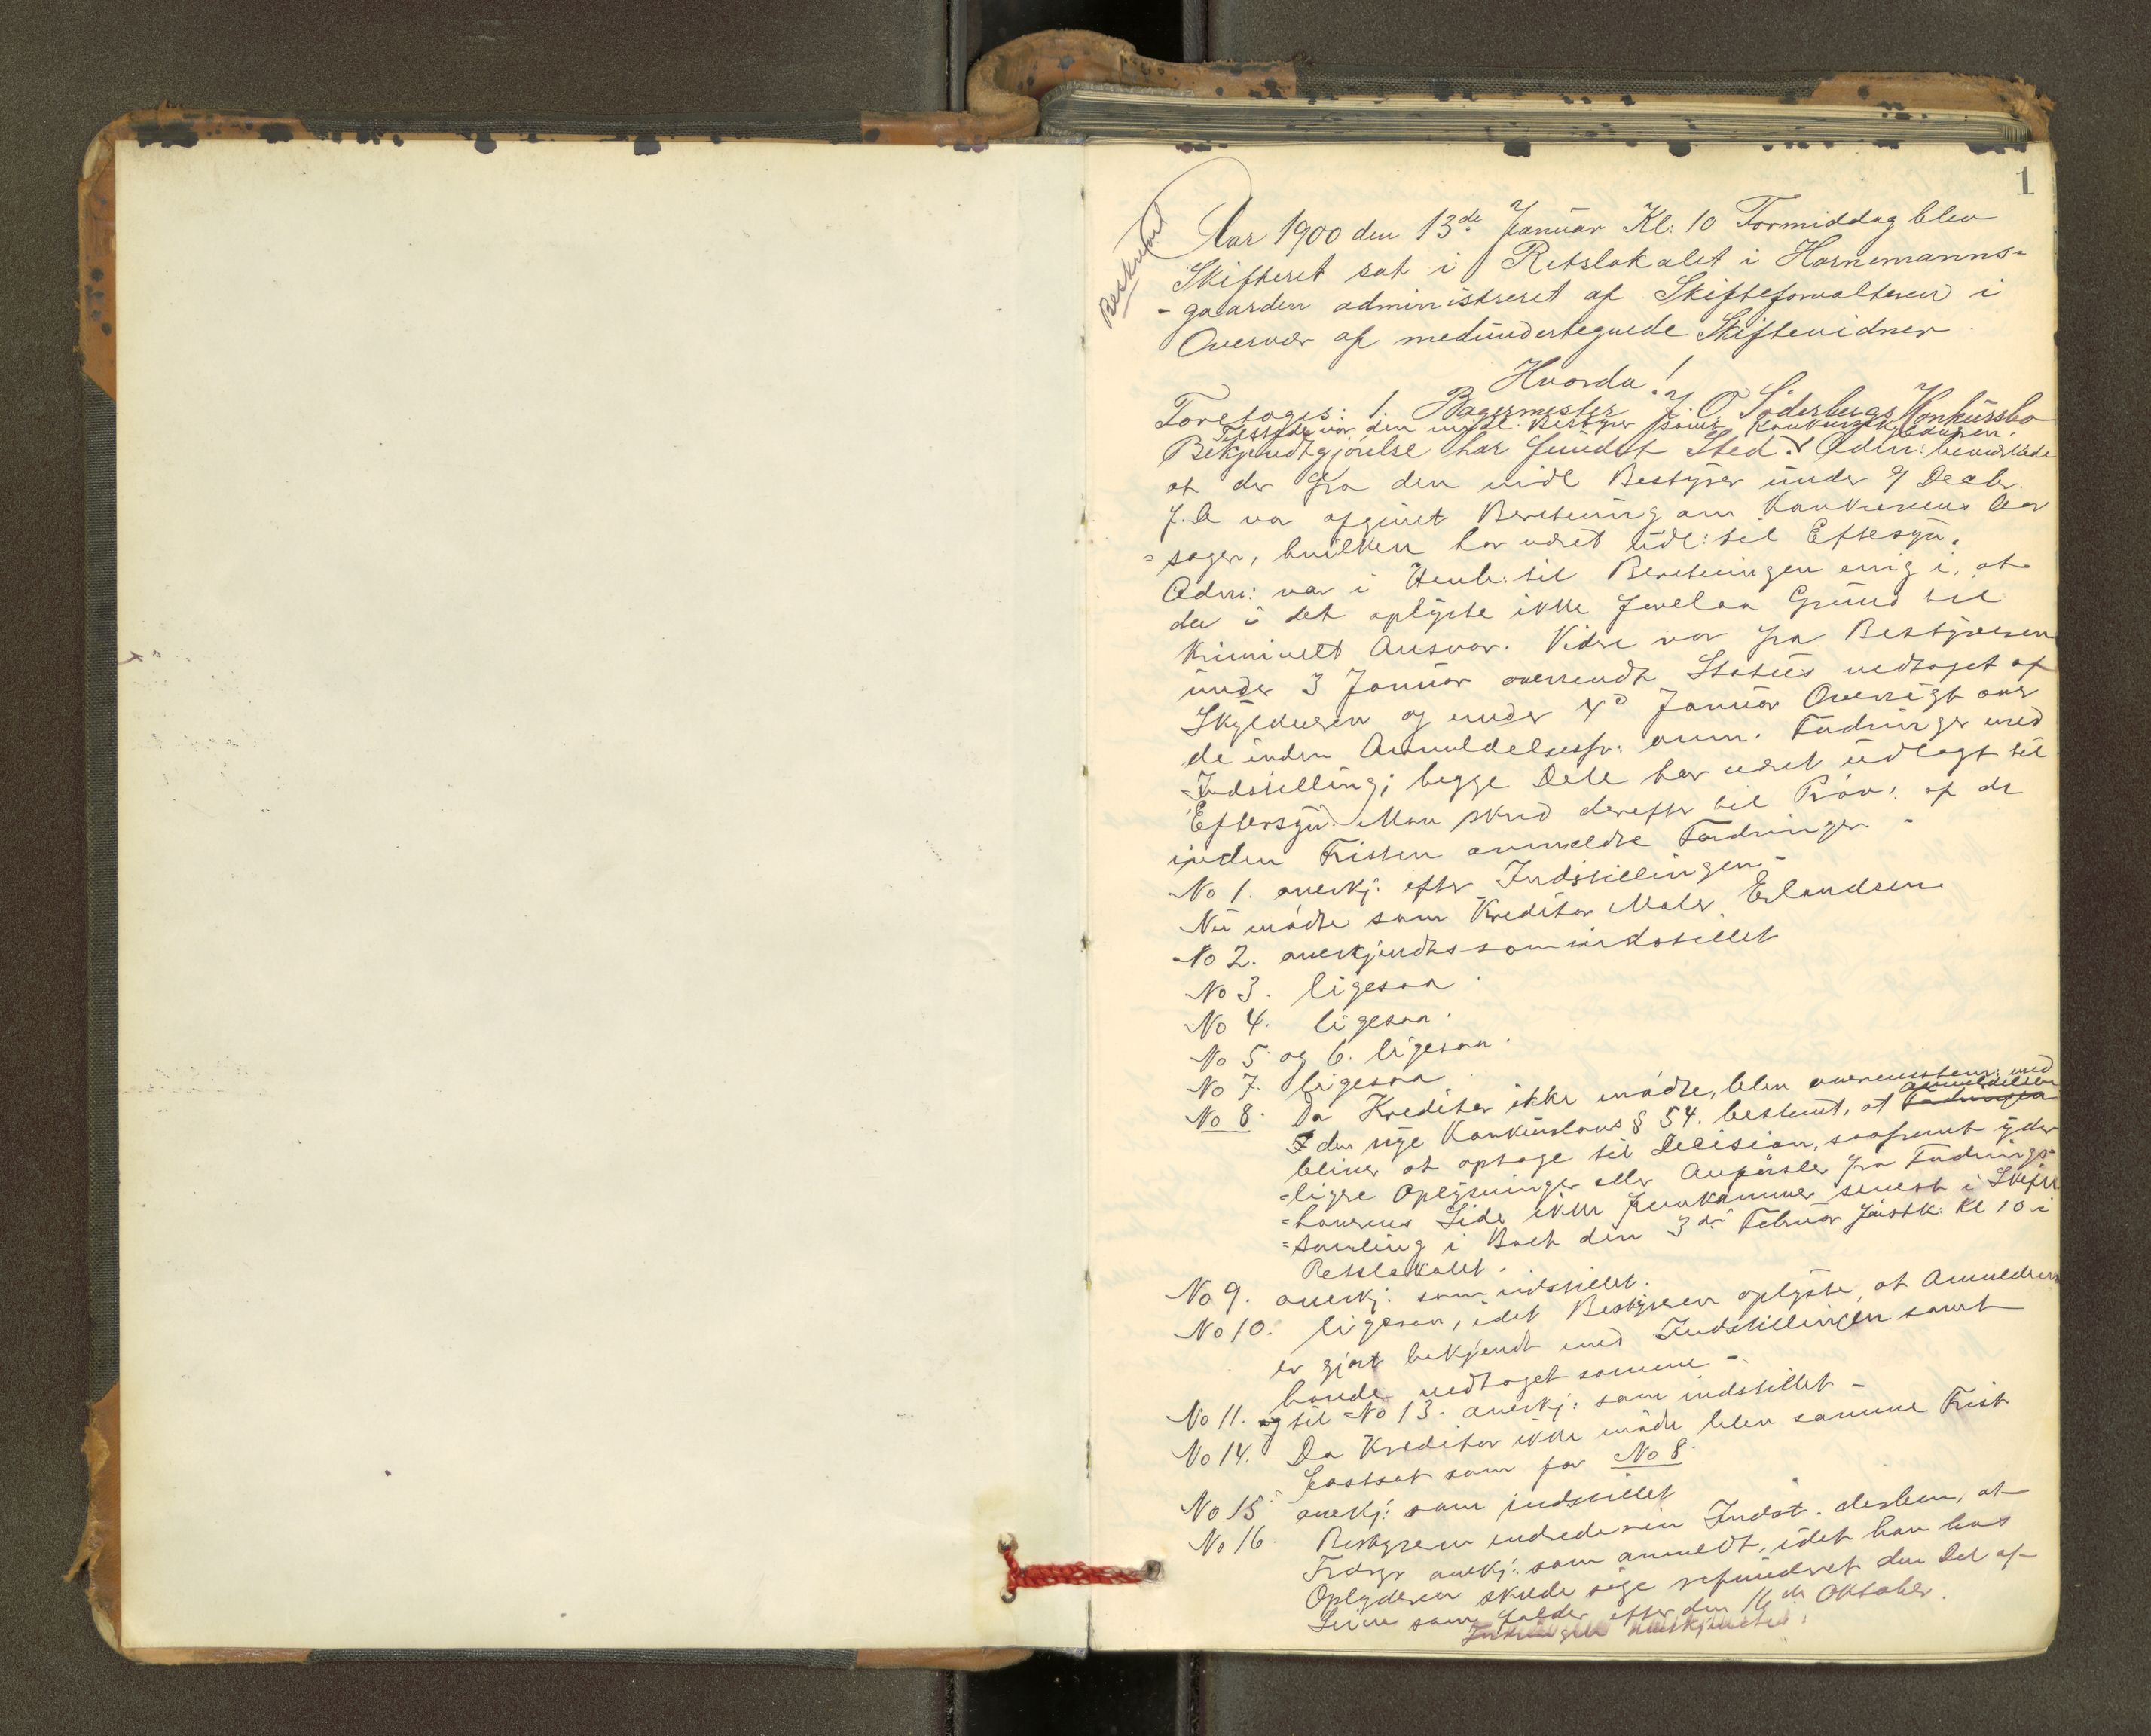 1
Beskrevet
Aar 1900 den 13de Januar Kl: 10 Formiddag blev
Skifteret sat i Retslokalet i Hornemanns-
-gaarden administreret af Skifteforvalteren i
Overvær af medundertegnede Skiftevidner.
Hvorda!
Foretoges: 1. Bagermester J. O. Söderbergs Konkursbo
Tilstede var den midl. Bestyrer samt Konkursskyldneren.
Bekjendtgjörelse har fundet Sted. Adm: bemærkede
at der fra den midl Bestyrer under 9 Decbr.
f. A var afgivet Beretning om Konkursens Aar
=sager, hvilken har været udl: til Eftersyn.
Adm: var i Henh: til Beretningen enig i, at
der i det oplyste ikke forelaa Grund til
Kriminelt Ansvar. Videre var fra Bestyreren
under 3 Januar oversendt Status vedtaget af
Skyldneren og under 4d Januar Oversigt over
de inden Anmeldelsesfr: anm. Fordringer med
Indstilling; begge Dele har været udlagt til
Eftersyn. Man skred derefter til Pröv: af de
inden Fristen anmeldte Fordringer. -
No 1. anerkj: efter Indstillingen -
Nu mödte som Kreditor Maler Erlandsen.
No 2. anerkjendtes som indstillet
No 3. ligesaa.
No 4. ligesaa.
No 5 og 6. ligesaa.
No 7. ligesaa
No 8. Da Kreditor ikke mödte, blev overensstem: med
Anmeldelsen
den nye Konkurslovs § 54. bestemt, at Fordringen
bliver at optage til Decision, saafremt yder
=ligere Oplysninger eller Anförsler fra Fordrings-
=haverens Side ikke fremkommer senest i Skifte
=samling i Boet den 3die Februar förstk: Kl 10 i
Retslokalet.
No 9. anerkj: som indstillet.
No 10. ligesaa, idet Bestyreren oplyste, at Anmelderen
er gjort bekjendt med Indstillingen samt
havde vedtaget samme -
No 11. og til No 13. anerkj: som indstillet -
No 14. Da Kreditor ikke mödte blev samme Frist
fastsat som for No 8.
No 15. anerkj: som indstillet
No 16. Bestyreren endrede sin Indst. derhen, at
Fordrgr anerkj: som anmeldt, idet han hos
skulde söge refunderet den Del af
som falder efter den 16de Oktober.